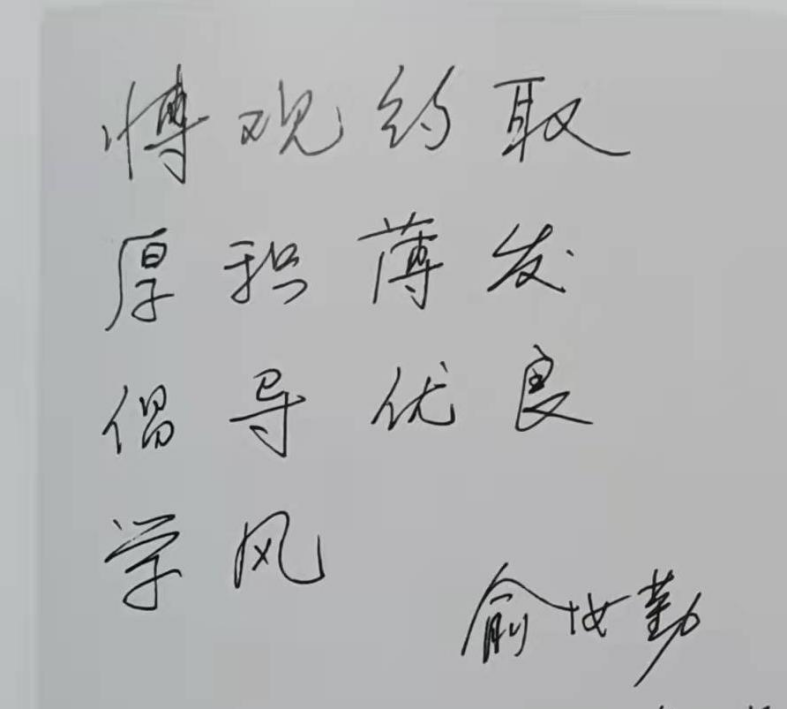 博观约取
厚积薄发
倡导优良
学风
俞汝勤